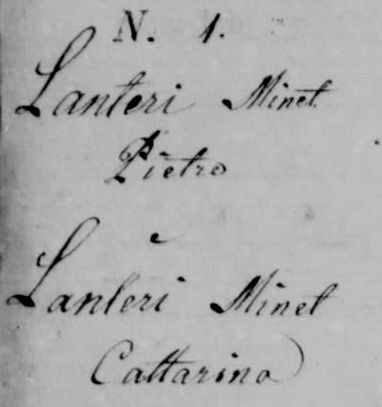 N. 1.
Lanteri Minet
Pietro
e
Lanteri Minet
Cattarina